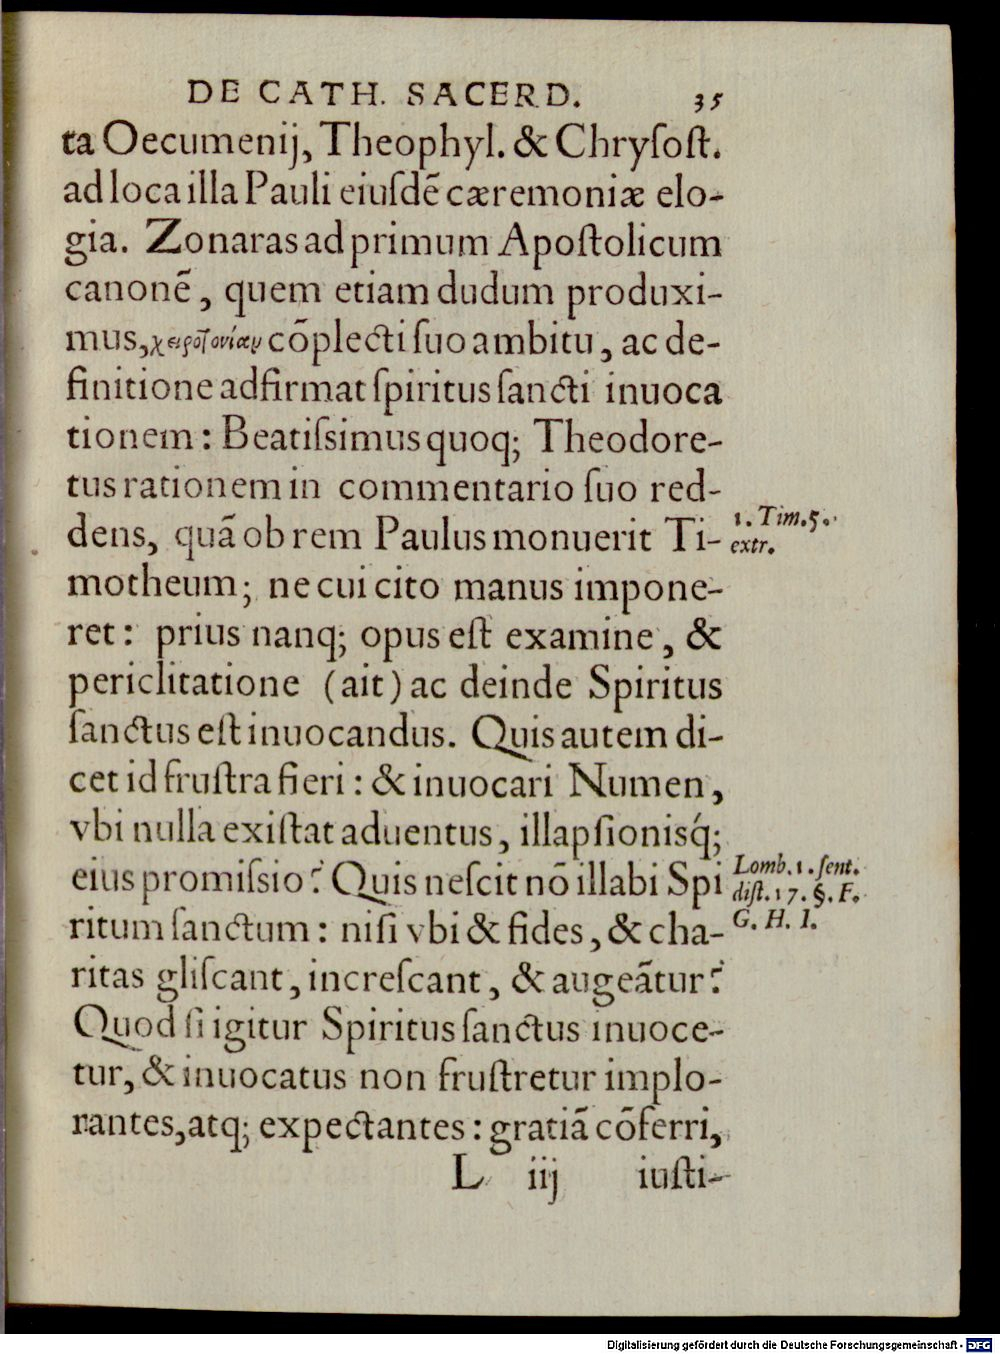 DE CATH. SACERD. 35
ta Oecumenij, Theophyl. & Chryſoſt.
ad loca illa Pauli eiuſdē cæremoniæ elo-
gia. Zonaras ad primum Apoſtolicum
canonē, quem etiam dudum produxi-
mus, χειροτονίαν cōplecti ſuo ambitu, ac de-
finitione adfirmat ſpiritus ſancti inuoca
tionem: Beatiſsimus quoq; Theodore-
tus rationem in commentario ſuo red-
dens, quā ob rem Paulus monuerit Ti-
1. Tim. 5.
extr.
motheum; ne cui cito manus impone-
ret: prius nanq; opus eſt examine, &
periclitatione (ait) ac deinde Spiritus
ſanctus eſt inuocandus. Quis autem di-
cet id fruſtra fieri: & inuocari Numen,
vbi nulla exiſtat aduentus, illapſionisq́;
eius promiſsio? Quis neſcit nō illabi Spi
Lomb. 1. ſent.
diſt. 17. §. F.
G. H. I.
ritum ſanctum: niſi vbi & fides, & cha-
ritas gliſcant, increſcant, & augeātur?
Quod ſi igitur Spiritus ſanctus inuoce-
tur, & inuocatus non fruſtretur implo-
rantes, atq; expectantes: gratiā cōferri,
L iij iuſti-
Digitalisierung gefördert durch die Deutsche Forschungsgemeinschaft - DFG